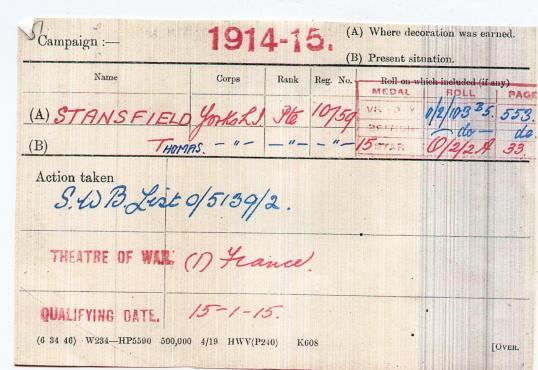 Campaign :— 1914-15. (A) Where decoration was earned.
(B) Present situation.
Name Corps Rank Reg. No. Roll on which included (if any)
MEDAL ROLL PAGE
(A) STANSFIELD York L I Pte 10759 VICTORY 0/2/103 B 5. 553.
BRITISH — do — do
(B) THOMAS. — " — — " — — " — 15 STAR 0/2/2A 33.
Action taken
S.W.B. List 0/5139/2.
THEATRE OF WAR. (1) France.
QUALIFYING DATE. 15-1-15.
(6 34 46) W234—HP5590 500,000 4/19 HWV(P240) K608 [OVER.